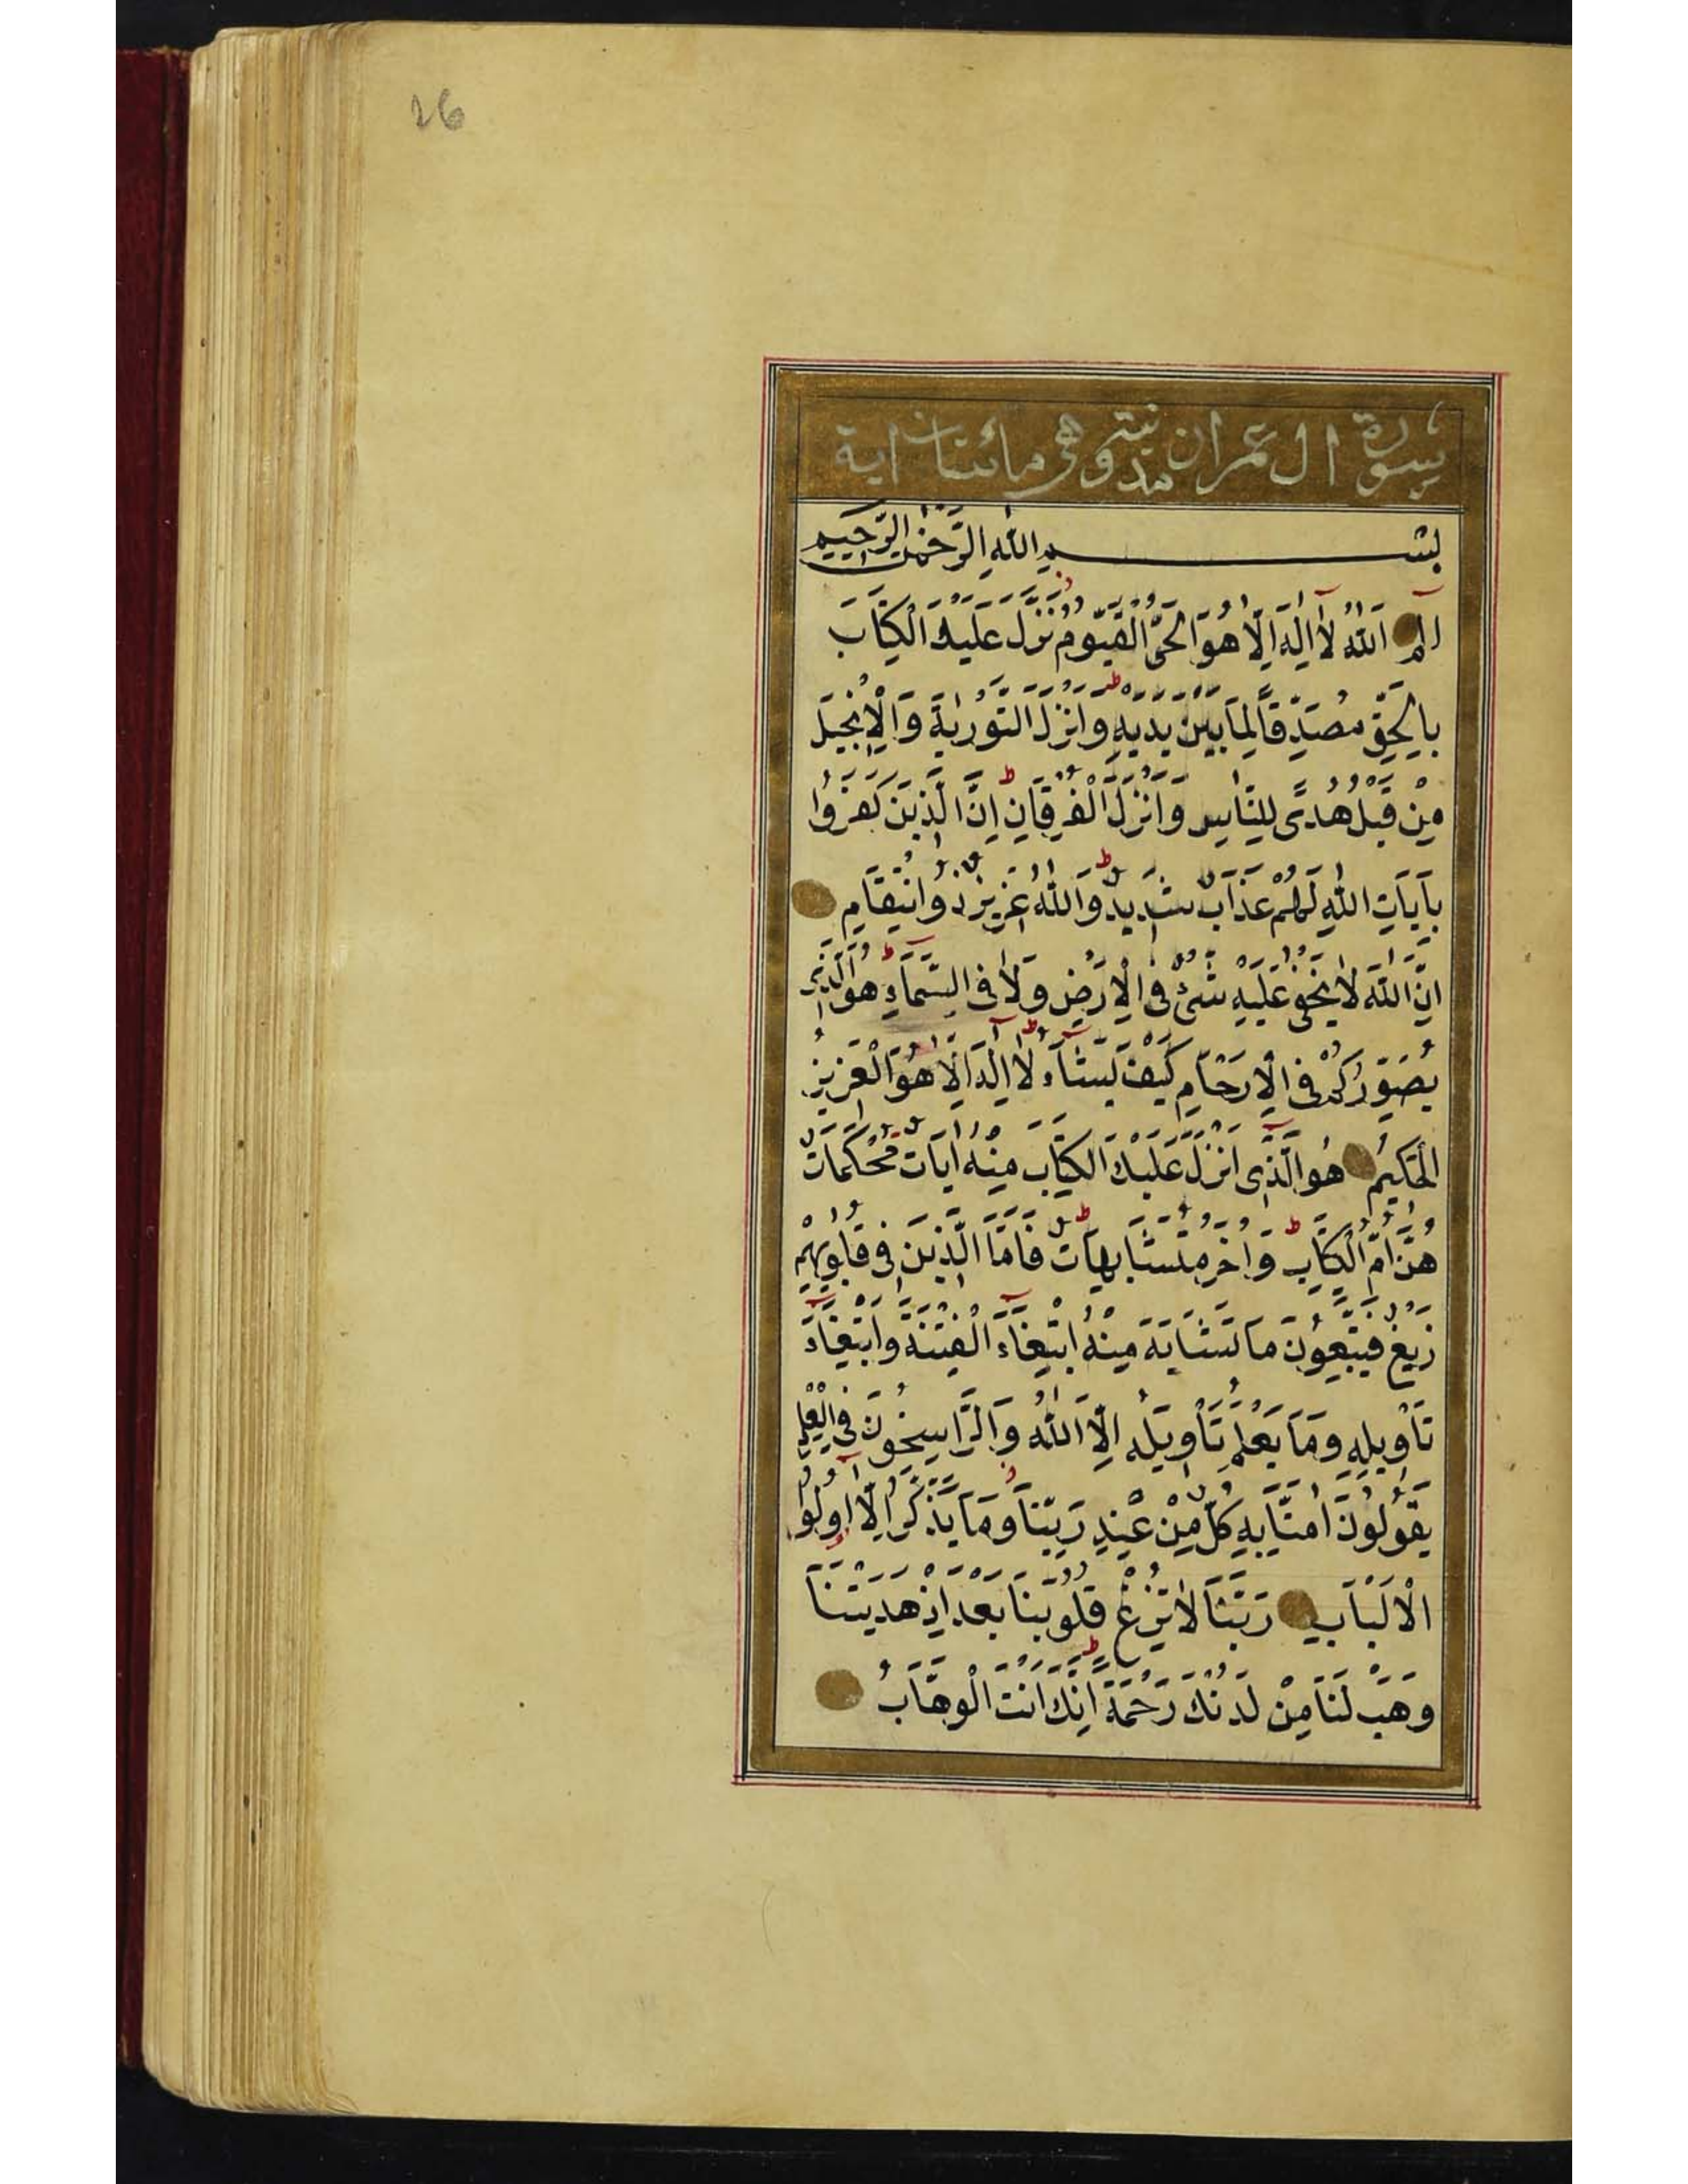 26
سورة ال عمران مدنية وهي مائتان اية
بسم الله الرَّحْمٰنِ الرَّحِيمِ
الم اَللّٰهُ لَا اِلٰهَ اِلَّا هُوَ الْحَيُّ الْقَيُّومُ نَزَّلَ عَلَيْكَ الْكِتَابَ
بِالْحَقِّ مُصَدِّقًا لِمَا بَيْنَ يَدَيْهِ وَاَنْزَلَ التَّوْرٰيةَ وَالْاِنْجِيلَ
مِنْ قَبْلُ هُدًى لِلنَّاسِ وَاَنْزَلَ الْفُرْقَانَ اِنَّ الَّذِينَ كَفَرُوا
بِآيَاتِ اللّٰهِ لَهُمْ عَذَابٌ شَدِيدٌ وَاللّٰهُ عَزِيزٌ ذُو انْتِقَامٍ
اِنَّ اللّٰهَ لَا يَخْفٰى عَلَيْهِ شَىْءٌ فِى الْاَرْضِ وَلَا فِى السَّمَاءِ هُوَ الَّذِى
يُصَوِّرُكُمْ فِى الْاَرْحَامِ كَيْفَ يَشَاءُ لَا اِلٰهَ اِلَّا هُوَ الْعَزِيزُ
الْحَكِيمُ هُوَ الَّذِى اَنْزَلَ عَلَيْكَ الْكِتَابَ مِنْهُ اٰيَاتٌ مُحْكَمَاتٌ
هُنَّ اُمُّ الْكِتَابِ وَاُخَرُ مُتَشَابِهَاتٌ فَاَمَّا الَّذِينَ فِى قُلُوبِهِمْ
زَيْغٌ فَيَتَّبِعُونَ مَا تَشَابَهَ مِنْهُ ابْتِغَاءَ الْفِتْنَةِ وَابْتِغَاءَ
تَأْوِيلِهِ وَمَا يَعْلَمُ تَأْوِيلَهُ اِلَّا اللّٰهُ وَالرَّاسِخُونَ فِى الْعِلْمِ
يَقُولُونَ اٰمَنَّا بِهِ كُلٌّ مِنْ عِنْدِ رَبِّنَا وَمَا يَذَّكَّرُ اِلَّا اُولُوا
الْاَلْبَابِ رَبَّنَا لَا تُزِغْ قُلُوبَنَا بَعْدَ اِذْ هَدَيْتَنَا
وَهَبْ لَنَا مِنْ لَدُنْكَ رَحْمَةً اِنَّكَ اَنْتَ الْوَهَّابُ